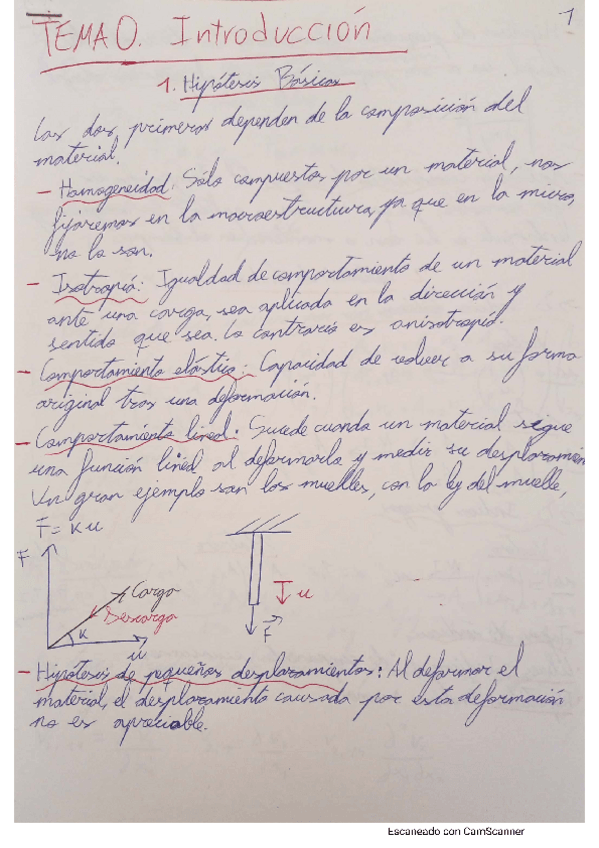 1
TEMA 0. Introducción
1. Hipótesis Básicas
Las dos primeras dependen de la composición del
material.
- Homogeneidad: Sólo compuestos por un material, nos
fijaremos en la macroestructura, ya que en la micro,
no lo son.
- Isotropía: Igualdad de comportamiento de un material
ante una carga, sea aplicada en la dirección y
sentido que sea. Lo contrario es anisotropía.
- Comportamiento elástico: Capacidad de volver a su forma
original tras una deformación.
- Comportamiento lineal: Sucede cuando un material sigue
una función lineal al deformarlo y medir su desplazamien
Un gran ejemplo son los muelles, con la ley del muelle,
F = K u
F
Carga
Descarga
K
u
u
F
- Hipótesis de pequeños desplazamientos: Al deformar el
material, el desplazamiento causado por esta deformación
no es apreciable.
Escaneado con CamScanner